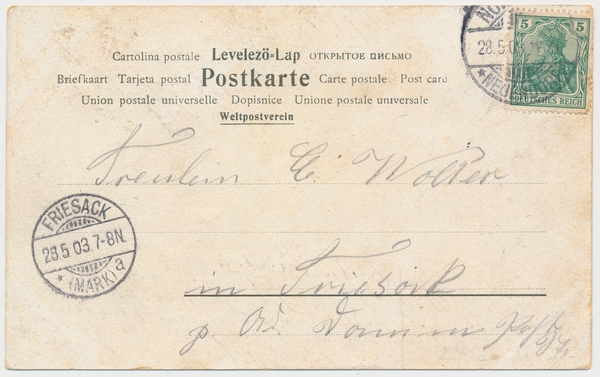 Cartolina postale Levelezö-Lap ОТКРЫТОЕ ПИСЬМО
Briefkaart Tarjeta postal Postkarte Carte postale Post card
Union postale universelle Dopisnice Unione postale universale
Weltpostverein
5 5
DEUTSCHES REICH
28.5.03
Freulein E. Wolter
FRIESACK
28.5.03.7-8N.
* (MARK) a
in Friesack
p. Ad.